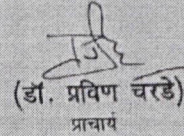 (डॉ. प्रविण चरडे)
प्राचार्य